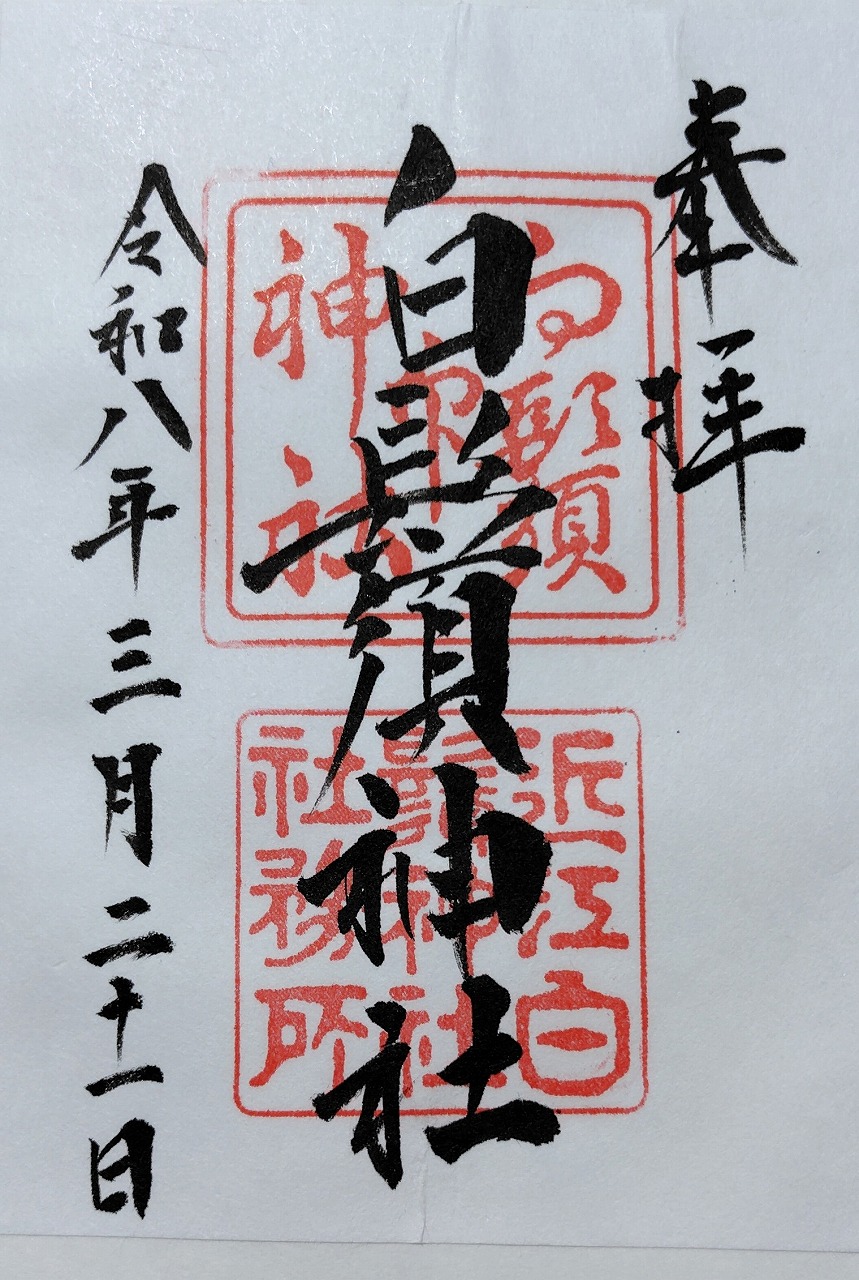 奉拝
白鬚神社
令和八年三月二十一日
白鬚
神社
近江白
鬚神社
社務所